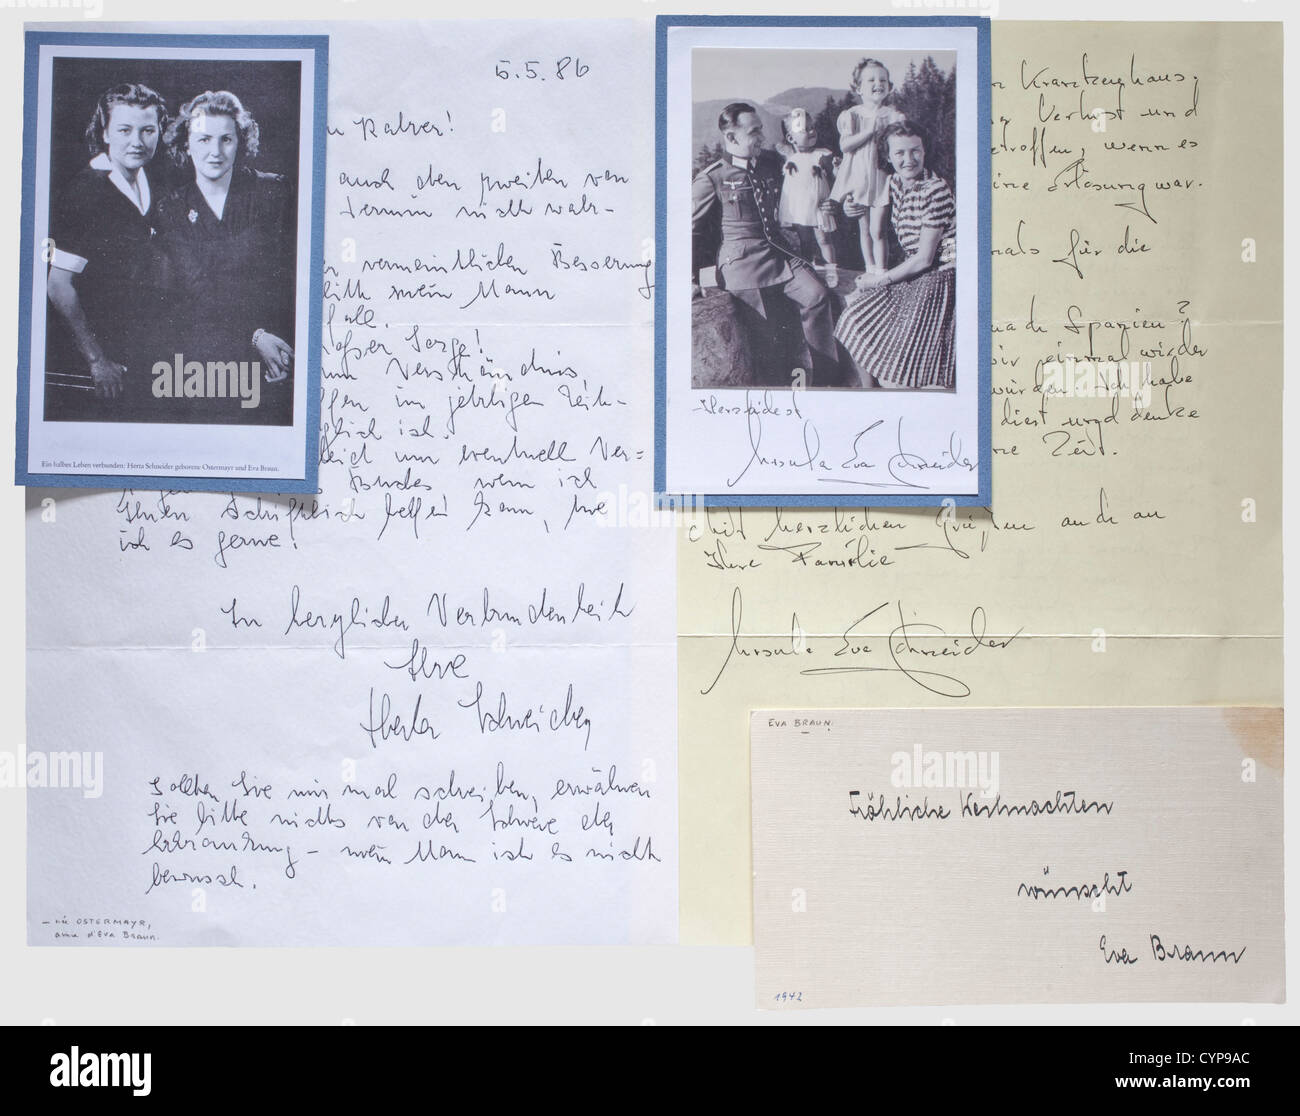 5.5.86
Kalver!
auch den zweiten von
Termin nicht wahr-
vermeintlichen Besserung
mein Mann
Sorge!
Verständnis
im jetzigen
ich.
um eventuell Ver=
wenn ich
Ihnen schriftlich helfen kann, tue
ich es gerne!
In herzlicher Verbundenheit
Ihre
Herta Schneider
Sollten Sie mir mal schreiben, erwähnen
Sie bitte nichts von der Schwere der
Erkrankung – mein Mann ist es nicht
bewusst.
– née OSTERMAYR,
amie d'Eva BRAUN.
Ein halbes Leben verbunden: Herta Schneider geborene Ostermayr und Eva Braun.
Herzlichst
Ursula Eva Schneider
Krankenhaus,
Verlust und
wenn es
Erlösung war.
für die
nach Spanien?
einmal wieder
würden. Ich habe
und denke
Zeit.
Mit herzlichen Grüßen auch an
Ihre Familie
Ursula Eva Schneider
EVA BRAUN.
Fröhliche Weihnachten
wünscht
Eva Braun
1942
alamy
alamy stock photo
Image ID: CYP9AC
www.alamy.com